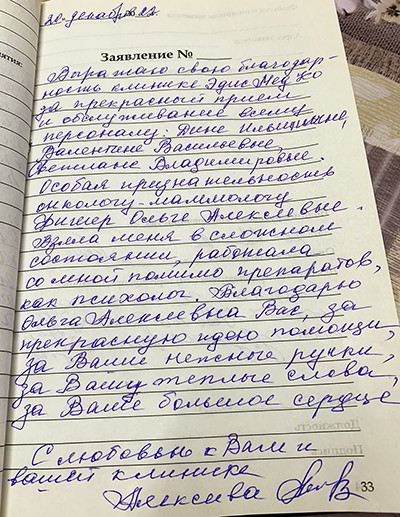 20 декабря 22.
Заявление №
Выражаю свою благодар-
ность клинике Эдис Мед Ко
за прекрасный прием
и обслуживание всему
персоналу: Дине Ильиничне,
Валентине Васильевне,
Светлане Владимировне.
Особая признательность
онкологу-маммологу
Фишер Ольге Алексеевне.
Взяла меня в сложном
состоянии, работала
со мной помимо препаратов,
как психолог. Благодарю
Ольга Алексеевна Вас, за
прекрасную идею помощи,
за Ваши нежные ручки,
за Ваши теплые слова,
за Ваше большое сердце
С любовью к Вам и
вашей клинике
Алексива
33